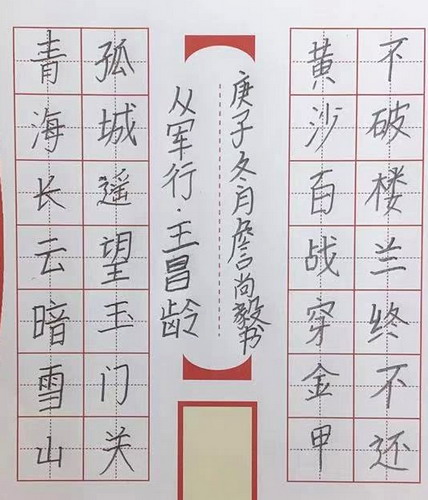 青海长云暗雪山
孤城遥望玉门关
从军行·王昌龄
庚子冬月詹尚毅书
黄沙百战穿金甲
不破楼兰终不还